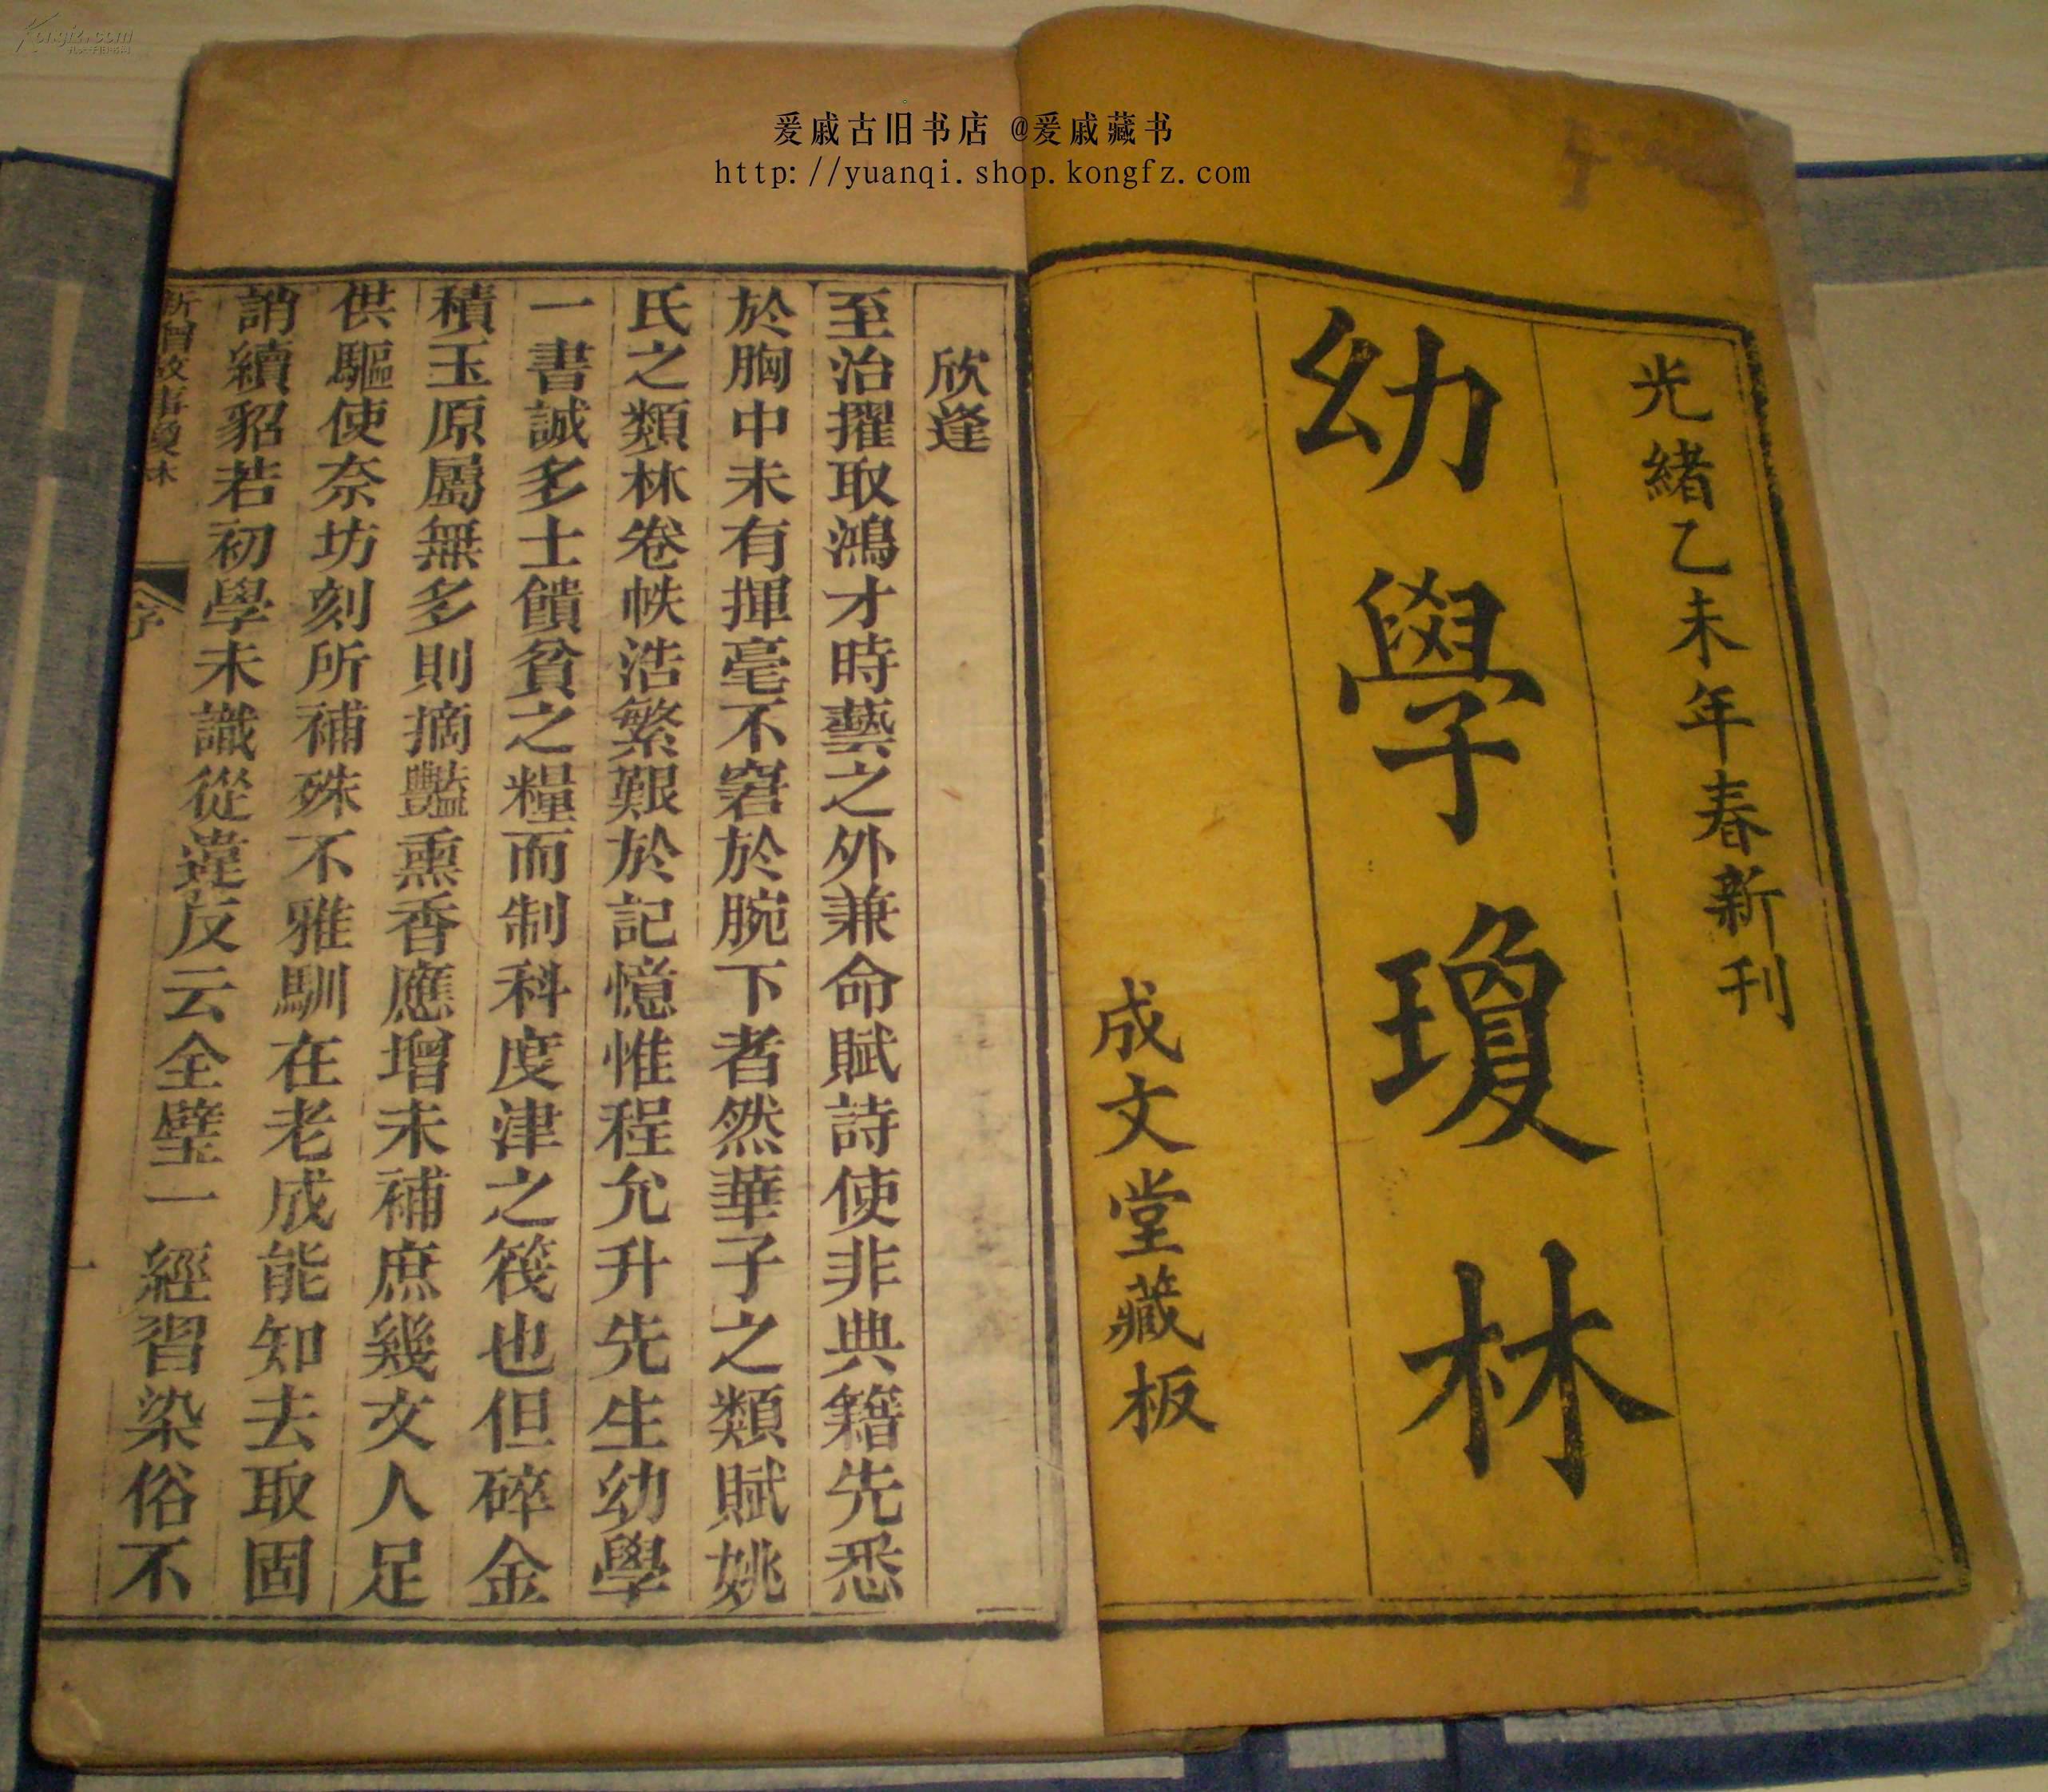 爰戚古旧书店 @爰戚藏书
http://yuanqi.shop.kongfz.com
光緒乙未年春新刊
幼學瓊林
成文堂藏板
欣逢
至治擢取鴻才時藝之外兼命賦詩使非典籍先悉
於胸中未有揮毫不窘於腕下者然華子之類賦姚
氏之類林卷帙浩繁艱於記憶惟程允升先生幼學
一書誠多士饋貧之糧而制科度津之筏也但碎金
積玉原屬無多則摘豔熏香應增未補庶幾文人足
供驅使奈坊刻所補殊不雅馴在老成能知去取固
誚續貂若初學未識從違反云全璧一經習染俗不
新增故事瓊林
序
一
Kongfz.com
孔夫子旧书网